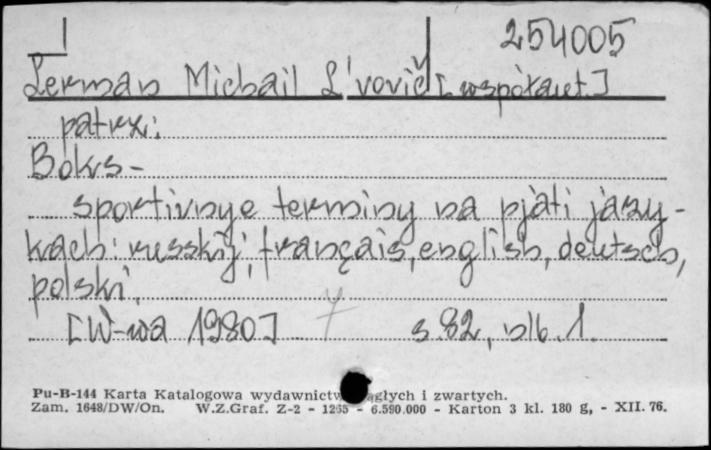 254005
Lerman Michail L'vovič [współaut.]
patrz:
Boks-
sportivnye terminy na pjati jazy-
kach: russkij, français, english, deutsch,
polski.
[W-wa 1980] s. 82, nlb. 1.
Pu-B-144 Karta Katalogowa wydawnictw głych i zwartych.
Zam. 1648/DW/On. W.Z.Graf. Z-2 - 1265 - 6.590.000 - Karton 3 kl. 180 g, - XII. 76.